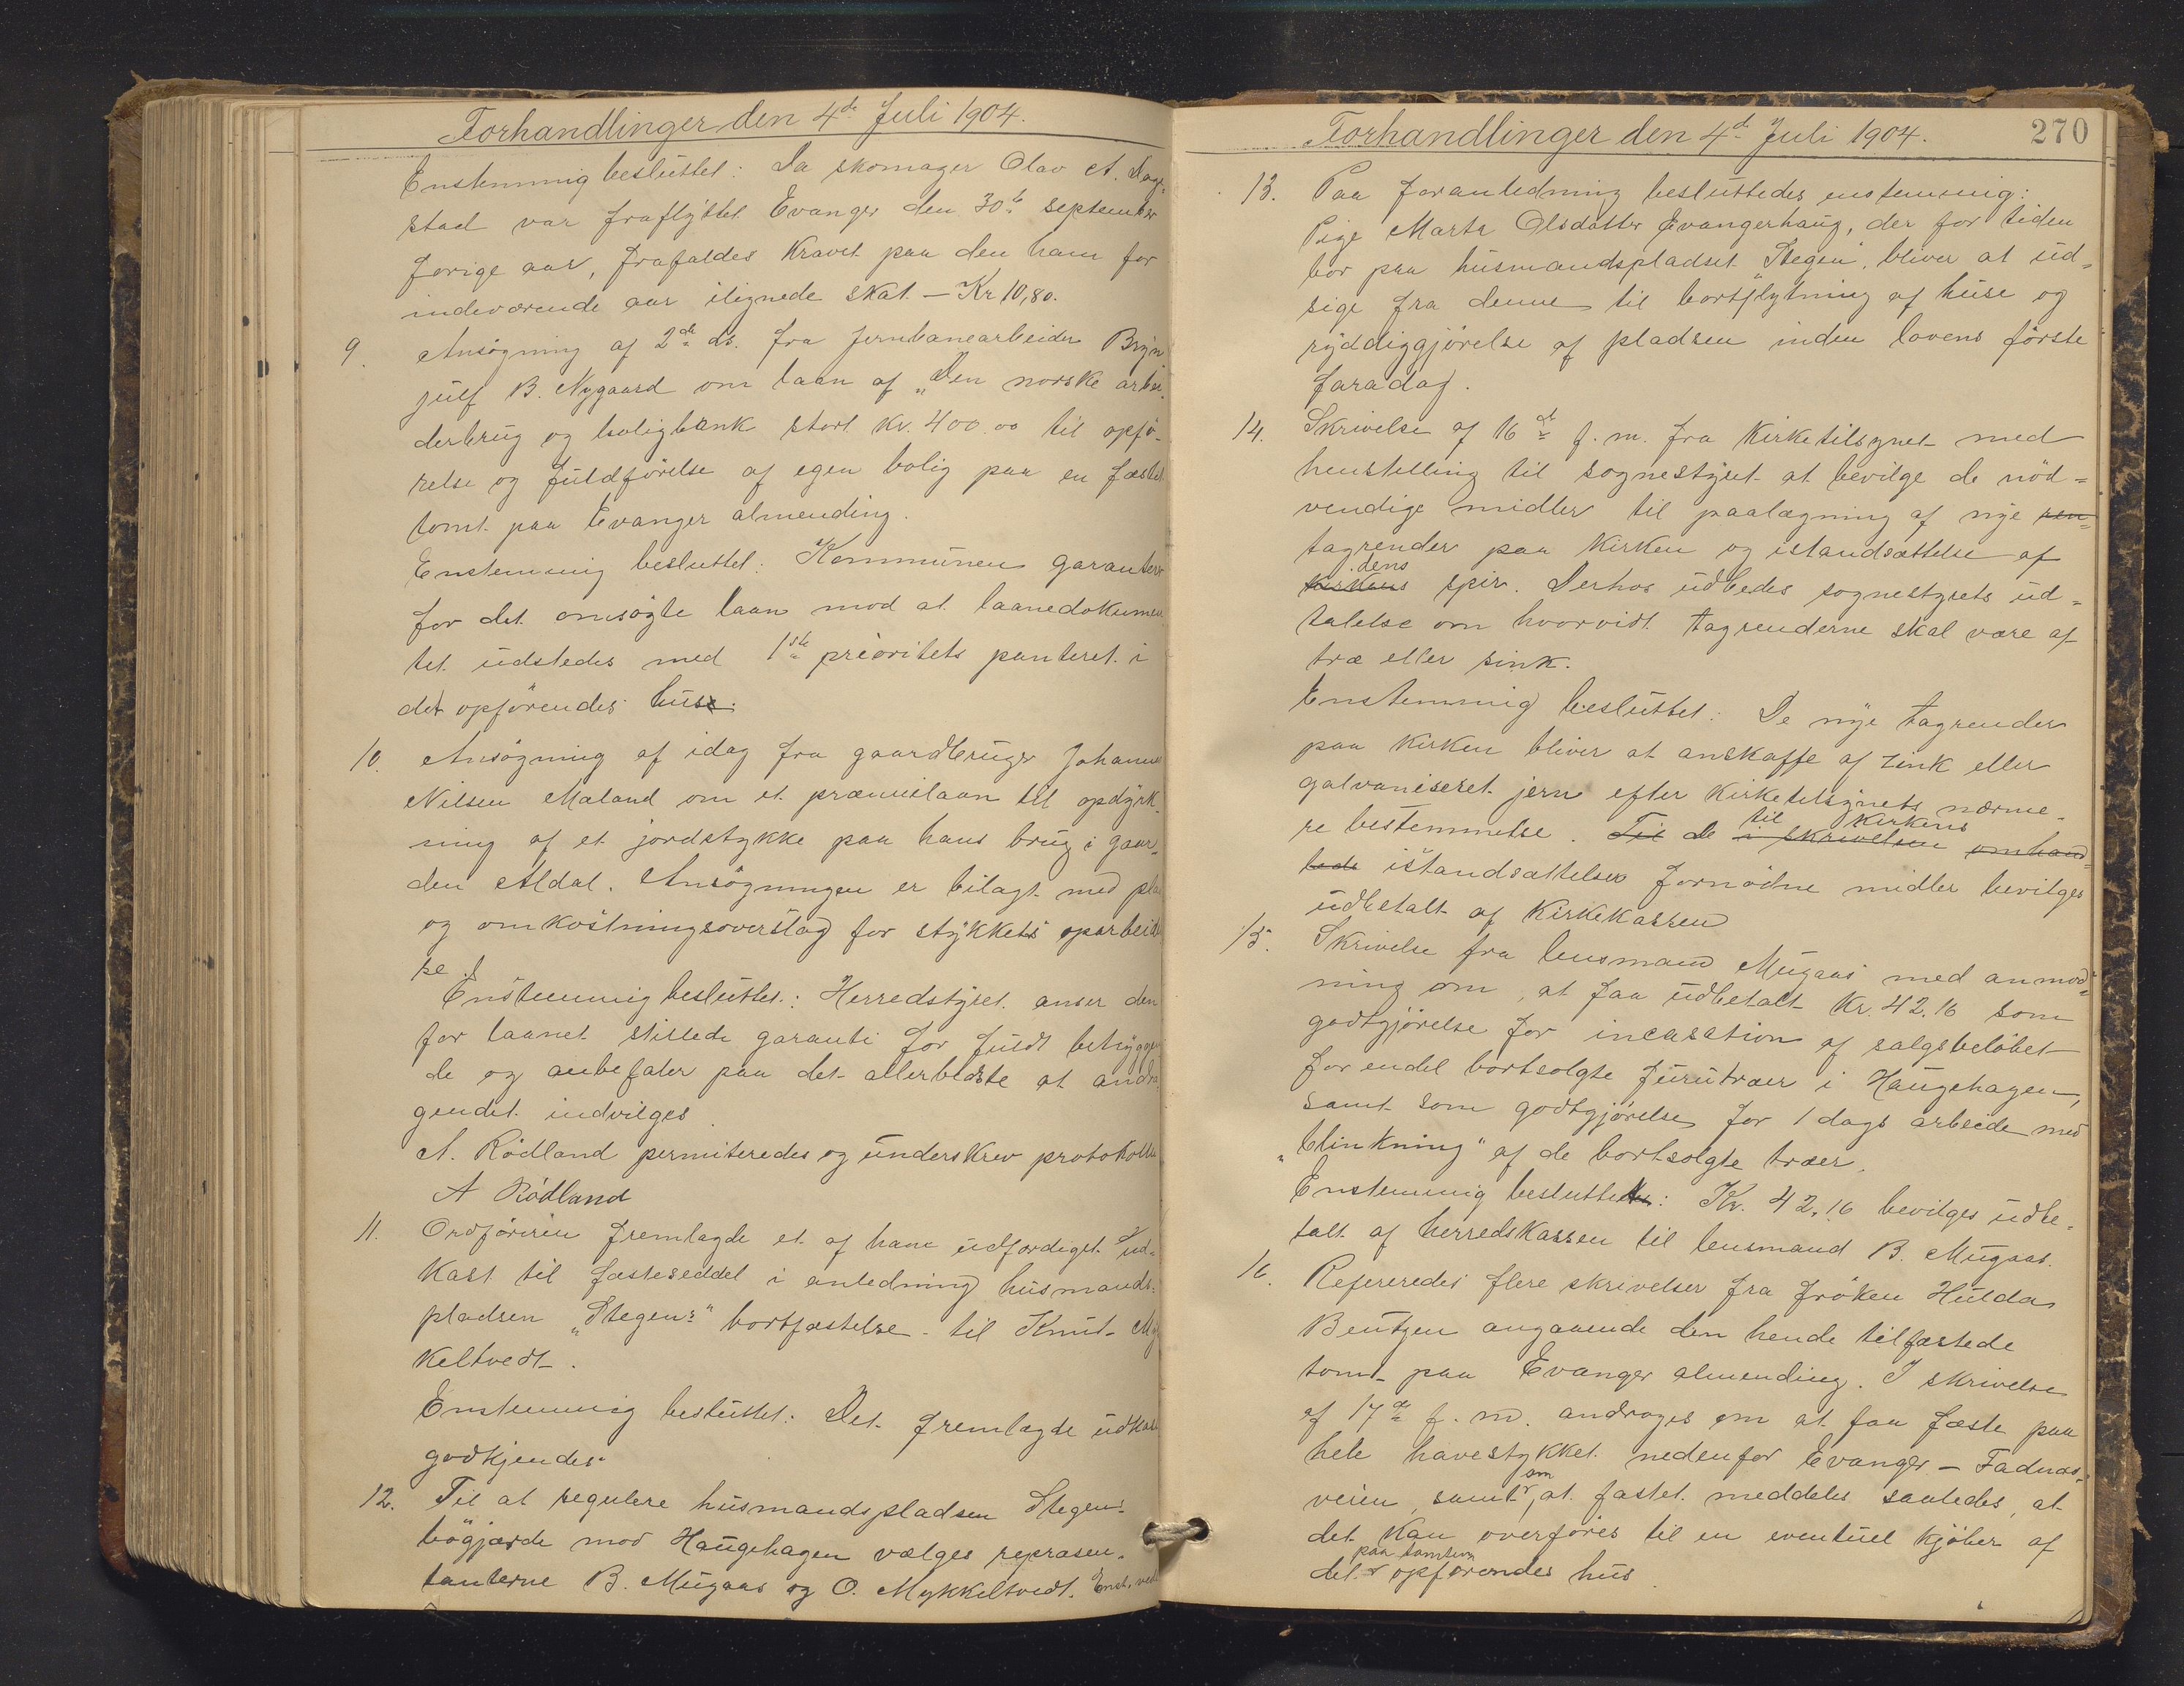 Forhandlinger den 4de Juli 1904.
Enstemmig besluttet: Da skomager Olav A. Dag-
stad var fraflyttet Evanger den 30te september
forige aar, frafaldes kravet paa den ham for
indeværende aar ilignede skat – Kr 10,80.
9. Ansøgning af 2de ds. fra jernbanearbeider Bryn
julf B. Nygaard om laan af „Den norske arbei-
derbrug og boligbank stort kr. 400.00 til opfø-
relse og fuldførelse af egen bolig paa en fæstet
tomt paa Evanger almending.
Enstemmig besluttet: Kommunen garanterer
for det omsøgte laan mod at laanedokumen
tet udstedes med 1ste prioritets panteret i
det opførendes hus.
10. Ansøgning af idag fra gaardbruger Johannes
Nilsen Maland om et præmielaan til opdyrk-
ning af et jordstykke paa hans brug i gaar-
den Aldal. Ansøgningen er bilagt med plan
og omkostningsoverslag for stykkets oparbeidel
se.
Enstemmig besluttet: Herredstyret anser den
for laanet stillede garanti for fuldt betryggen
de og anbefaler paa det allerbedste at andra
gendet indvilges.
A. Rödland permiteredes og underskrev protokollen
A Rödland
11. Ordføreren fremlagde et af ham udfærdiget ud-
kast til fæsteseddel i anledning husmands-
pladsen „Stegens“ bortfæstelse til Knut My
keltvedt.
Enstemmig besluttet: Det fremlagde udkast
godkjendes.
12. Til at regulere husmandspladsen Stegens
bøgjærde mod Haugehagen vælges repræsen-
tanterne B. Mugaas og O. Mykkeltvedt. Enst. ved
Forhandlinger den 4de Juli 1904. 270
13. Paa foranledning besluttedes enstemmig:
Pige Marta Olsdatter Evangerhaug, der for tiden
bor paa husmandspladset „Stegen“, bliver at ud-
sige fra denne til bortflytning af huse og
ryddiggjørelse af pladsen inden lovens første
faradag.
14. Skrivelse af 16de f. m. fra Kirketilsynet med
henstilling til sognestyret at bevilge de nød-
vendige midler til paalægning af nye ren-
tagrender paa kirken og istandsættelse af
dens
kirkens spir. Derhos udbedes sognestyrets ud-
talelse om hvorvidt tagrenderne skal være af
træ eller sink.
Enstemmig besluttet: De nye tagrender
paa kirken bliver at anskaffe af zink eller
galvaniseret jern efter kirketilsynets nærme-
til kirkens
re bestemmelse. Til de i skrivelsen omhand-
lede istandsættelser fornødne midler bevilges
udbetalt af Kirkekassen
15. Skrivelse fra lensmand Mugaas med anmod-
ning om, at faa udbetalt Kr. 42.16 som
godtgjørelse for incasation af salgsbeløbet
for endel bortsolgte furutræer i Haugehagen,
samt som godtgjørelse for 1 dags arbeide med
„blinkning“ af de bortsolgte træer.
Enstemmig besluttet: Kr. 42.16 bevilges udbe-
talt af herredskassen til lensmand B. Mugaas.
16. Refereredes flere skrivelser fra frøken Hulda
Bentzen angaaende den hende tilfæstede
tomt paa Evanger almending. I skrivelse
af 17de f. m. andrages om at faa fæste paa
hele havestykket nedenfor Evanger – Fadnæs-
om
veien, samt, at fæstet meddeles saaledes, at
det kan overføres til en eventuel kjøber af
paa tomten
det opførendes hus.